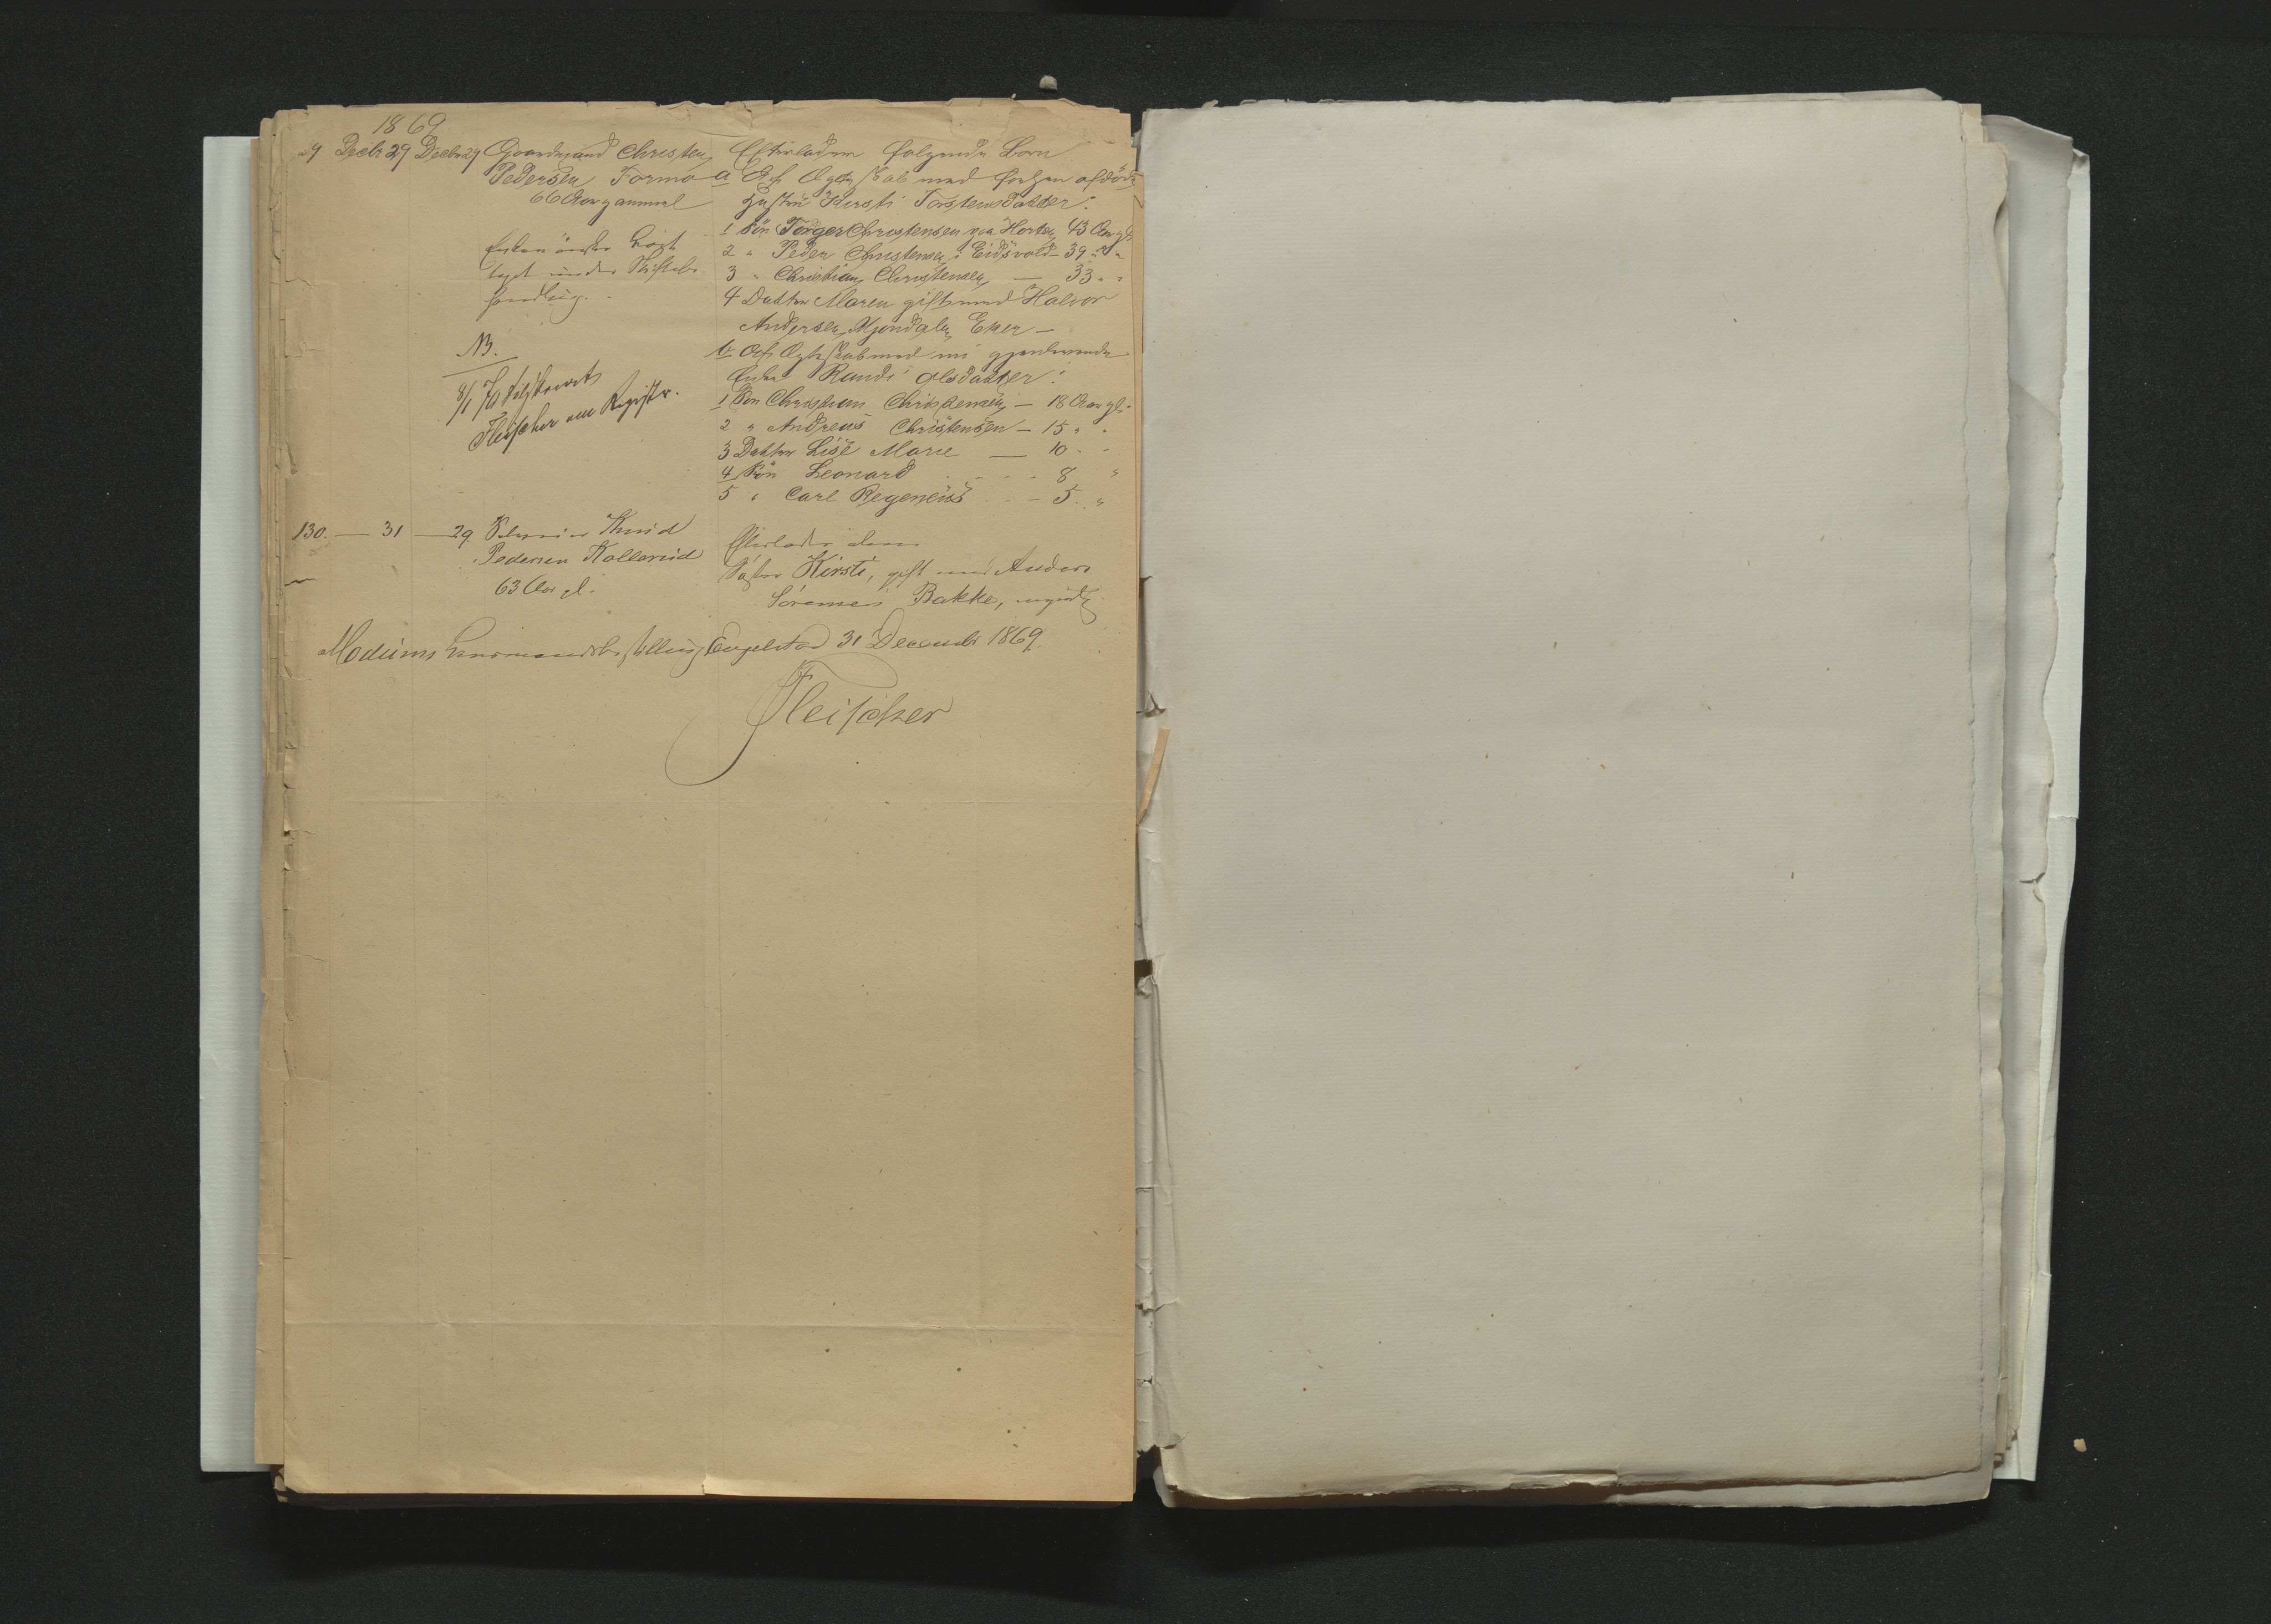 1869
29 Decbr 29 Decbr 29 Gaardmand Christen
Pedersen Formo
66 Aar gammel
Enken ønsker Boet
taget under Skiftebe-
handling.
NB.
8/1 70 tilskrevet
Fleischer om Registr.
Efterlader følgende Børn
a Af Ægteskab med forhen afdøde
Hustru Kirsti Torstensdatter:
1 Søn Torger Christensen paa Horten 43 Aar gl.
2 " Peder Christensen i Eidsvold - 39 " "
3 " Christian Christensen, — 33 " "
4 Datter Maren gift med Halvor
Andersen Mjøndalen Eker —
b Af Ægteskab med nu gjenlevende
Enke Randi Olsdatter:
1 Søn Christian Christensen — 18 Aar gl.
2 " Andreas Christensen — 15 " "
3 Datter Lise Marie — 10 " "
4 Søn Leonard - - - 8 "
5 " Carl Regenius - - - 5 "
130. — 31 — 29 Knud
Pedersen Kollerud
63 Aar gl.
Efterlader
Søster Kirsti, gift med Anders
Sørensen Bakke, myndig
Modums Lensmandsbestilling Engelstad 31 December 1869.
Fleischer